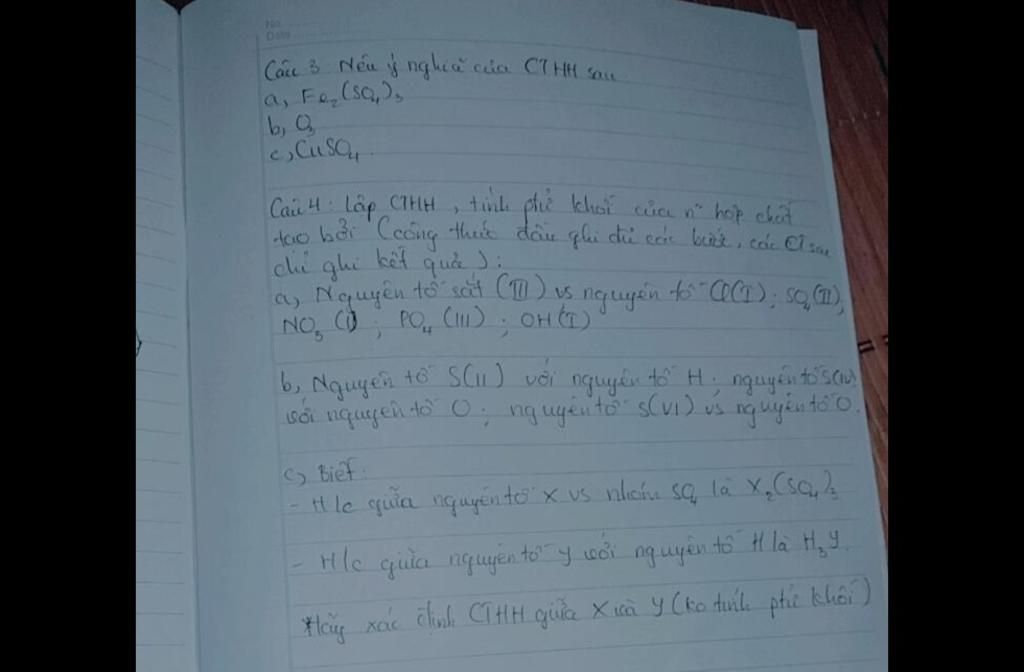 No
Date
Câu 3 Nêu ý nghĩa của CTHH sau
a, Fe₂(SO₄)₃
b, O₃
c, CuSO₄
Câu 4: Lập CTHH, tính ptử khối của n~ hợp chất
tạo bởi (công thức đầu ghi đủ các bước, các CT sau
chỉ ghi kết quả):
a, Nguyên tố sắt (III) vs nguyên tố Cl(I); SO₄(II);
NO₃ (I); PO₄ (III); OH(I)
b, Nguyên tố S(II) với nguyên tố H; nguyên tố S(IV)
với nguyên tố O; nguyên tố S(VI) vs nguyên tố O.
c, Biết:
- H/c giữa nguyên tố X vs nhóm SO₄ là X₂(SO₄)₃
- H/c giữa nguyên tố Y với nguyên tố H là H₃Y
*Hãy xác định CTHH giữa X và Y (ko tính ptử khối)